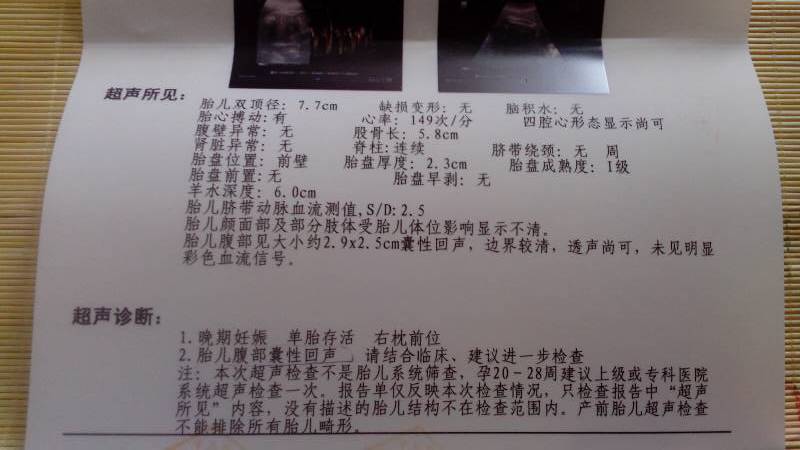 超声所见：
胎儿双顶径：7.7cm 缺损变形：无 脑积水：无
胎心搏动：有 心率：149次/分 四腔心形态显示尚可
腹壁异常：无 股骨长：5.8cm
肾脏异常：无 脊柱：连续 脐带绕颈：无 周
胎盘位置：前壁 胎盘厚度：2.3cm 胎盘成熟度：I级
胎盘前置：无 胎盘早剥：无
羊水深度：6.0cm
胎儿脐带动脉血流测值，S/D：2.5
胎儿颜面部及部分肢体受胎儿体位影响显示不清。
胎儿腹部见大小约2.9x2.5cm囊性回声，边界较清，透声尚可，未见明显
彩色血流信号。
超声诊断：
1.晚期妊娠 单胎存活 右枕前位
2.胎儿腹部囊性回声 请结合临床、建议进一步检查
注：本次超声检查不是胎儿系统筛查，孕20-28周建议上级或专科医院
系统超声检查一次。报告单仅反映本次检查情况，只检查报告中“超声
所见”内容，没有描述的胎儿结构不在检查范围内。产前胎儿超声检查
不能排除所有胎儿畸形。